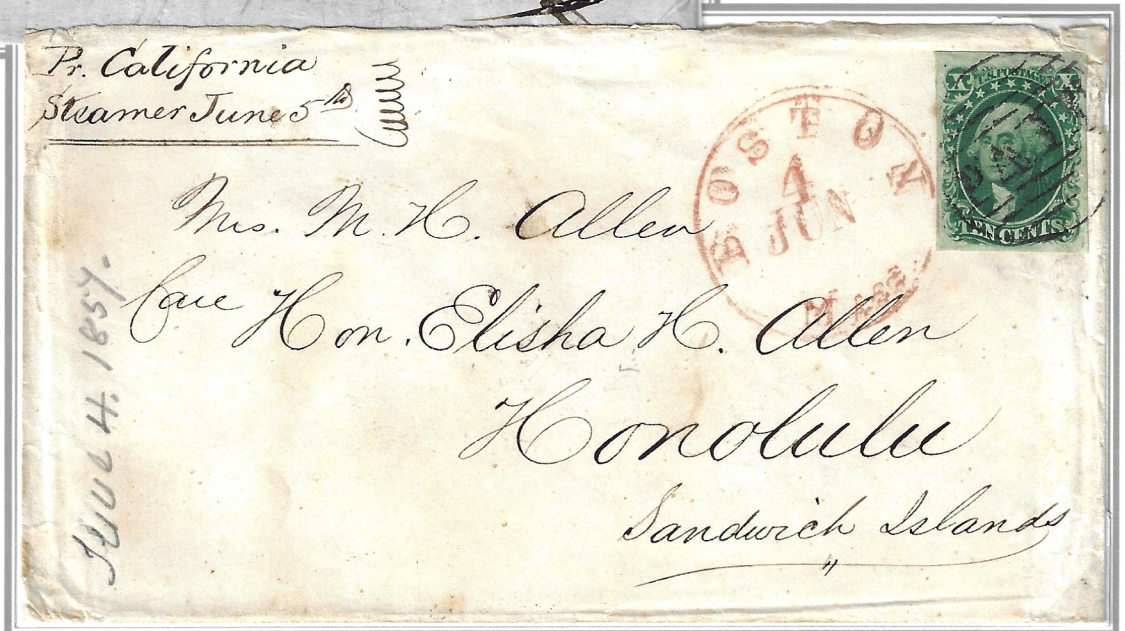 Pr. California
Steamer June 5th
BOSTON
4
JUN
Mass
X U.S. POSTAGE X
TEN CENTS
Mrs. M. H. Allen
Care Hon. Elisha H. Allen
Honolulu
Sandwich Islands
June 4. 1857.